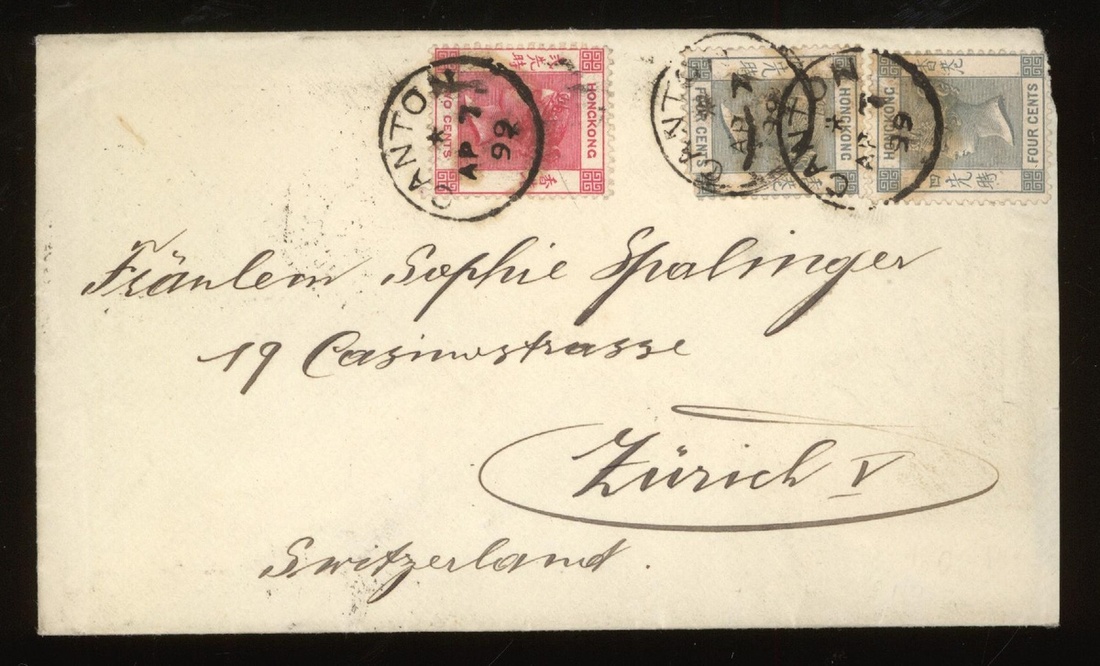 CANTON
AP 7
99
CANTON
AP 7
99
CANTON
AP 7
99
HONGKONG
TWO CENTS
HONGKONG
FOUR CENTS
HONGKONG
FOUR CENTS
Fräulein Sophie Spalinger
19 Casinostrasse
Zürich V
Switzerland.